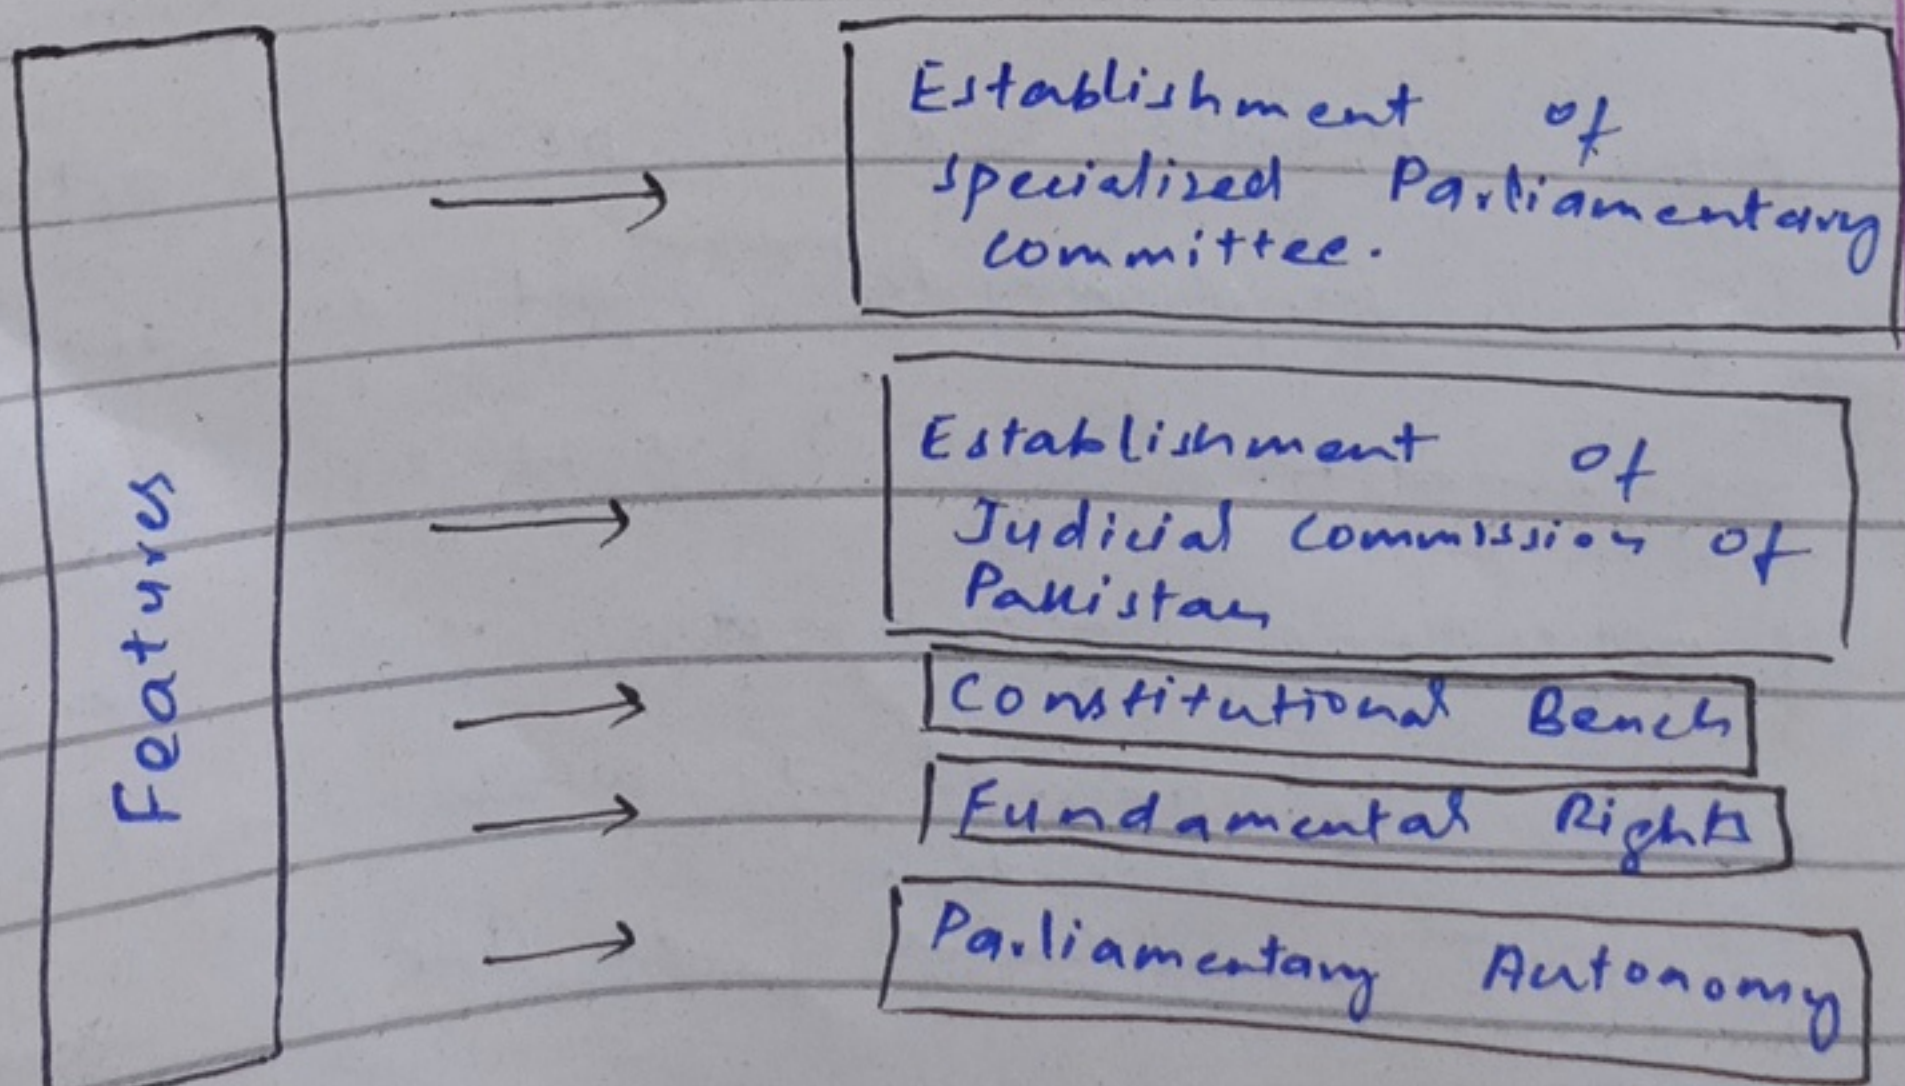 Features
Establishment of
specialized Parliamentary
committee.
Establishment of
Judicial Commission of
Pakistan
Constitutional Bench
Fundamental Rights
Parliamentary Autonomy